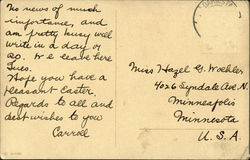 No news of much
importance, and
am pretty busy will
write in a day or
so. We leave here
Tues.
Hope you have a
pleasant Easter.
Regards to all and
best wishes to you
Carroll
Miss Hazel G. Woehler
4026 Lyndale Ave N.
Minneapolis
Minnesota
U. S. A.